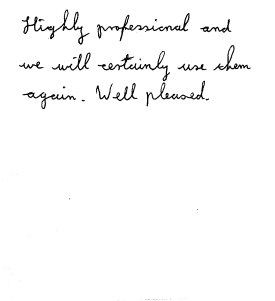 Highly professional and
we will certainly use them
again. Well pleased.